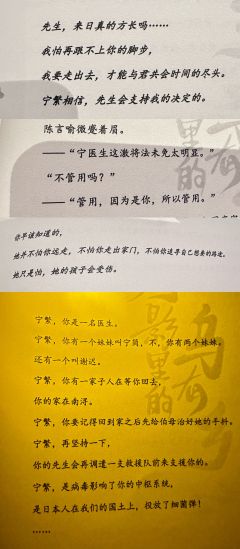 先生，来日真的方长吗……
我怕再跟不上你的脚步，
我要走出去，才能与君共会时间的尽头。
宁繁相信，先生会支持我的决定的。
陈言喻微蹙着眉。
——“宁医生这激将法未免太明显。”
“不管用吗？”
——“管用，因为是你，所以管用。”
你早该知道的，
她并不怕你远走，不怕你走出家门，不怕你追寻自己想要的路途。
她只是怕，她的孩子会受伤。
宁繁，你是一名医生。
宁繁，你有一个妹妹叫宁简，不，你有两个妹妹。
还有一个叫谢迟。
宁繁，你有一家子人在等你回去，
你的家在南浔。
宁繁，你要记得回到家之后先给伯母治好她的手抖。
宁繁，再坚持一下，
你的先生会再调遣一支救援队前来支援你的。
宁繁，是病毒影响了你的中枢系统，
是日本人在我们的国土上，投放了细菌弹！
……